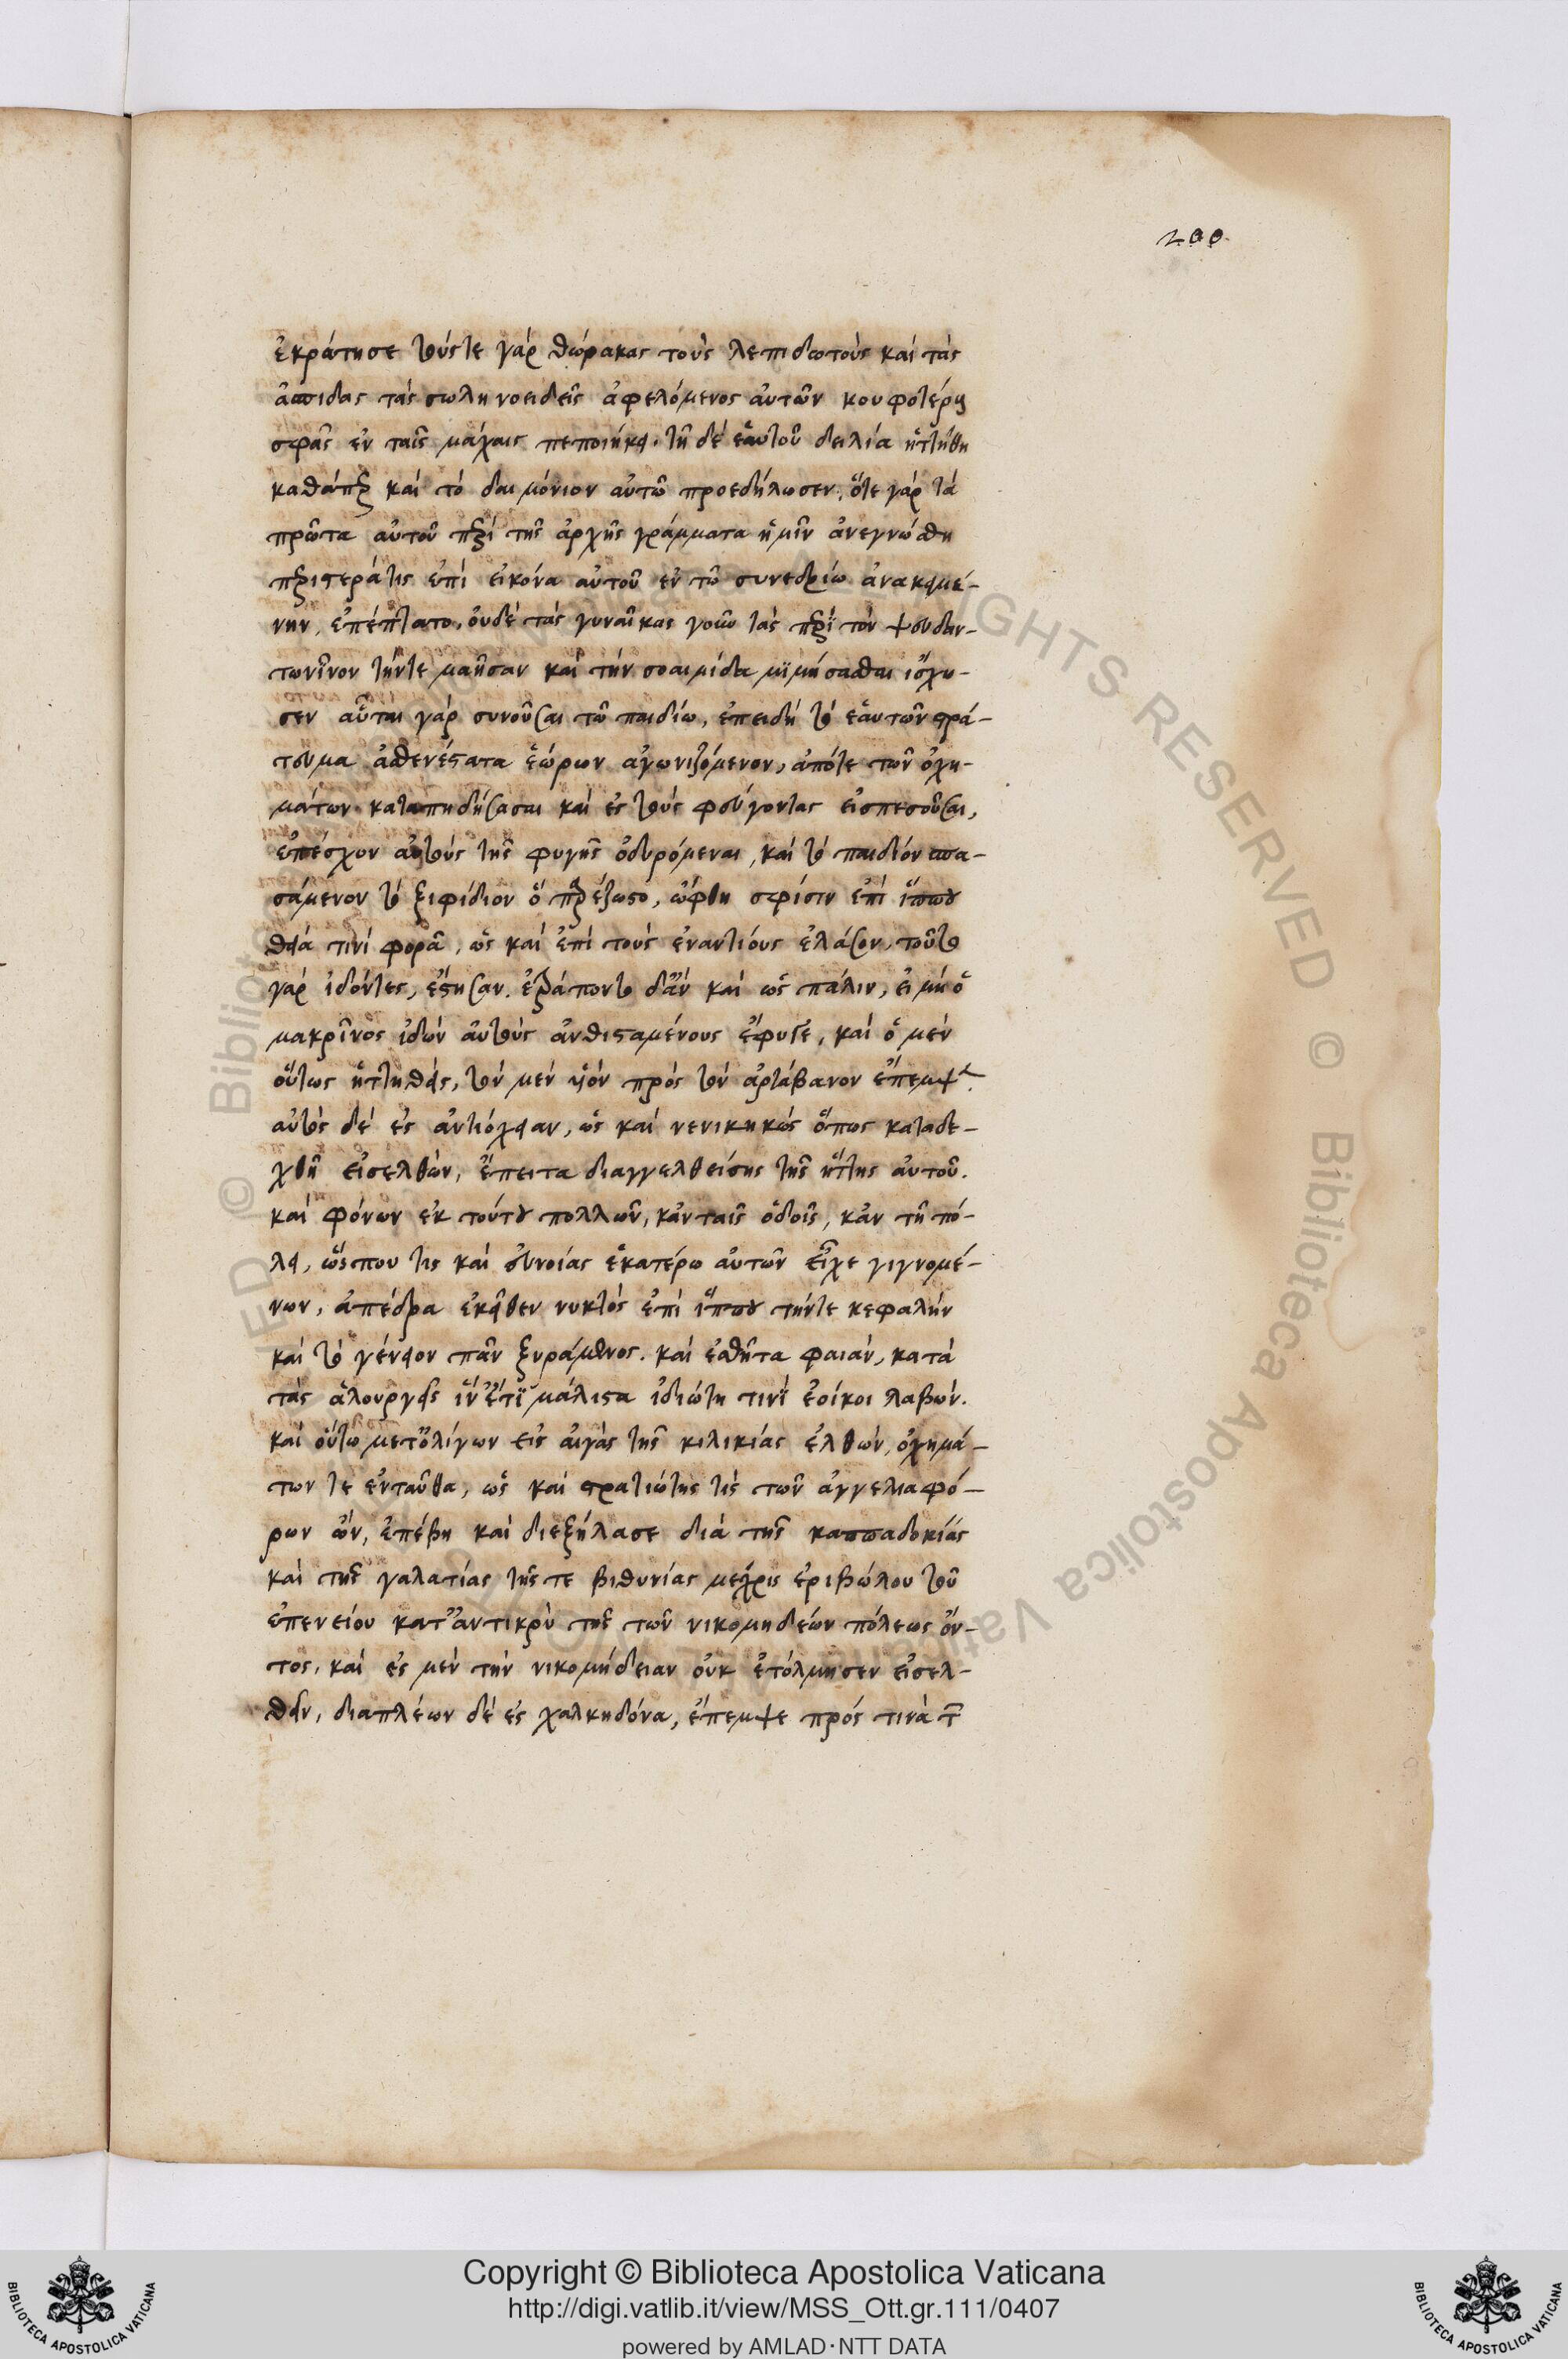 200
ἐκράτησε τούς τε γάρ θώρακας τούς λεπιδωτούς καί τάς
ἀσπιδας τάς σωληνοειδεῖς ἀφελόμενος αὐτῶν κουφοτέρους
σφᾶς ἐν ταῖς μάχαις πεποιήκει. τῆ δέ ἑαυτοῦ δειλία ἡττήθη
καθάπερ καί τό δαιμόνιον αὐτῶ προεδήλωσεν, ὅτε γάρ τά
πρῶτα αὐτοῦ περί τῆς ἀρχῆς γράμματα ἡμῖν ἀνεγνώσθη
περιστερά τις ἐπί εἰκόνα αὐτοῦ ἐν τῶ συνεδρίω ἀνακειμέ-
νην, ἐπέπτατο, οὐδέ τάς γυναῖκας γοῦν τάς περί τόν ψευδαν-
τωνῖνον τήν τε μαῆσαν καί τήν σοαιμίδα μιμήσασθαι ἴσχυ-
σεν αὗται γάρ συνοῦσαι τῶ παιδίω, ἐπειδή τό ἑαυτῶν στρά-
τευμα ἀσθενέστατα ἑώρων ἀγωνιζόμενον, ἀπό τε τῶν ὀχη-
μάτων καταπηδήσασαι καί ἐς τούς φεύγοντας εἰσπεσοῦσαι,
ἐπέσχον αὐτούς τῆς φυγῆς ὀδυρόμεναι, καί τό παιδίον σπα-
σάμενον τό ξιφίδιον ὅ περιέζωστο, ὤφθη σφίσιν ἐπί ἵππου
θεία τινί φορᾶ, ὡς καί ἐπί τούς ἐναντίους ἐλάσον, τοῦτο
γάρ ἰδόντες, ἔστησαν. ἐτράποντο δ' ἄν καί ὥς πάλιν, εἰ μή ὁ
μακρῖνος ἰδών αὐτούς ἀνθισταμένους ἔφυγε, καί ὁ μέν
οὕτως ἡττηθείς, τόν μέν υἱόν πρός τόν ἀρτάβανον ἔπεμψεν.
αὐτός δέ ἐς ἀντιόχειαν, ὡς καί νενικηκώς ὅπως καταδε-
χθῆ εἰσελθών, ἔπειτα διαγγελθείσης τῆς ἥττης αὐτοῦ.
καί φόνων ἐκ τούτου πολλῶν, κἀν ταῖς ὁδοῖς, κἀν τῆ πό-
λει, ὥς που τις καί εὐνοίας ἑκατέρω αὐτῶν εἶχε γιγνομέ-
νων, ἀπέδρα ἐκεῖθεν νυκτός ἐπί ἵππου τήν τε κεφαλήν
καί τό γένειον πᾶν ξυράμενος. καί ἐσθῆτα φαιάν, κατά
τάς ἁλουργεῖς ἵν' ἔτι μάλιστα ἰδιώτη τινί ἐοίκοι λαβών.
καί οὕτω μετ' ὀλίγων εἰς αἰγάς τῆς κιλικίας ἐλθών, ὀχημά-
των τε ἐνταῦθα, ὡς καί στρατιώτης τίς τῶν ἀγγελιαφό-
ρων ὤν, ἐπέβη καί διεξήλασε διά τῆς καππαδοκίας
καί τῆς γαλατίας τῆς τε βιθυνίας μέχρις ἐριβώλου τοῦ
ἐπινείου κατ' ἀντικρύ τῆς τῶν νικομηδέων πόλεως ὄν-
τος, καί ἐς μέν τήν νικομήδειαν οὐκ ἐτόλμησεν εἰσελ-
θεῖν, διαπλέων δέ ἐς χαλκηδόνα, ἔπεμψε πρός τινά τ
Copyright © Biblioteca Apostolica Vaticana
http://digi.vatlib.it/view/MSS_Ott.gr.111/0407
powered by AMLAD·NTT DATA